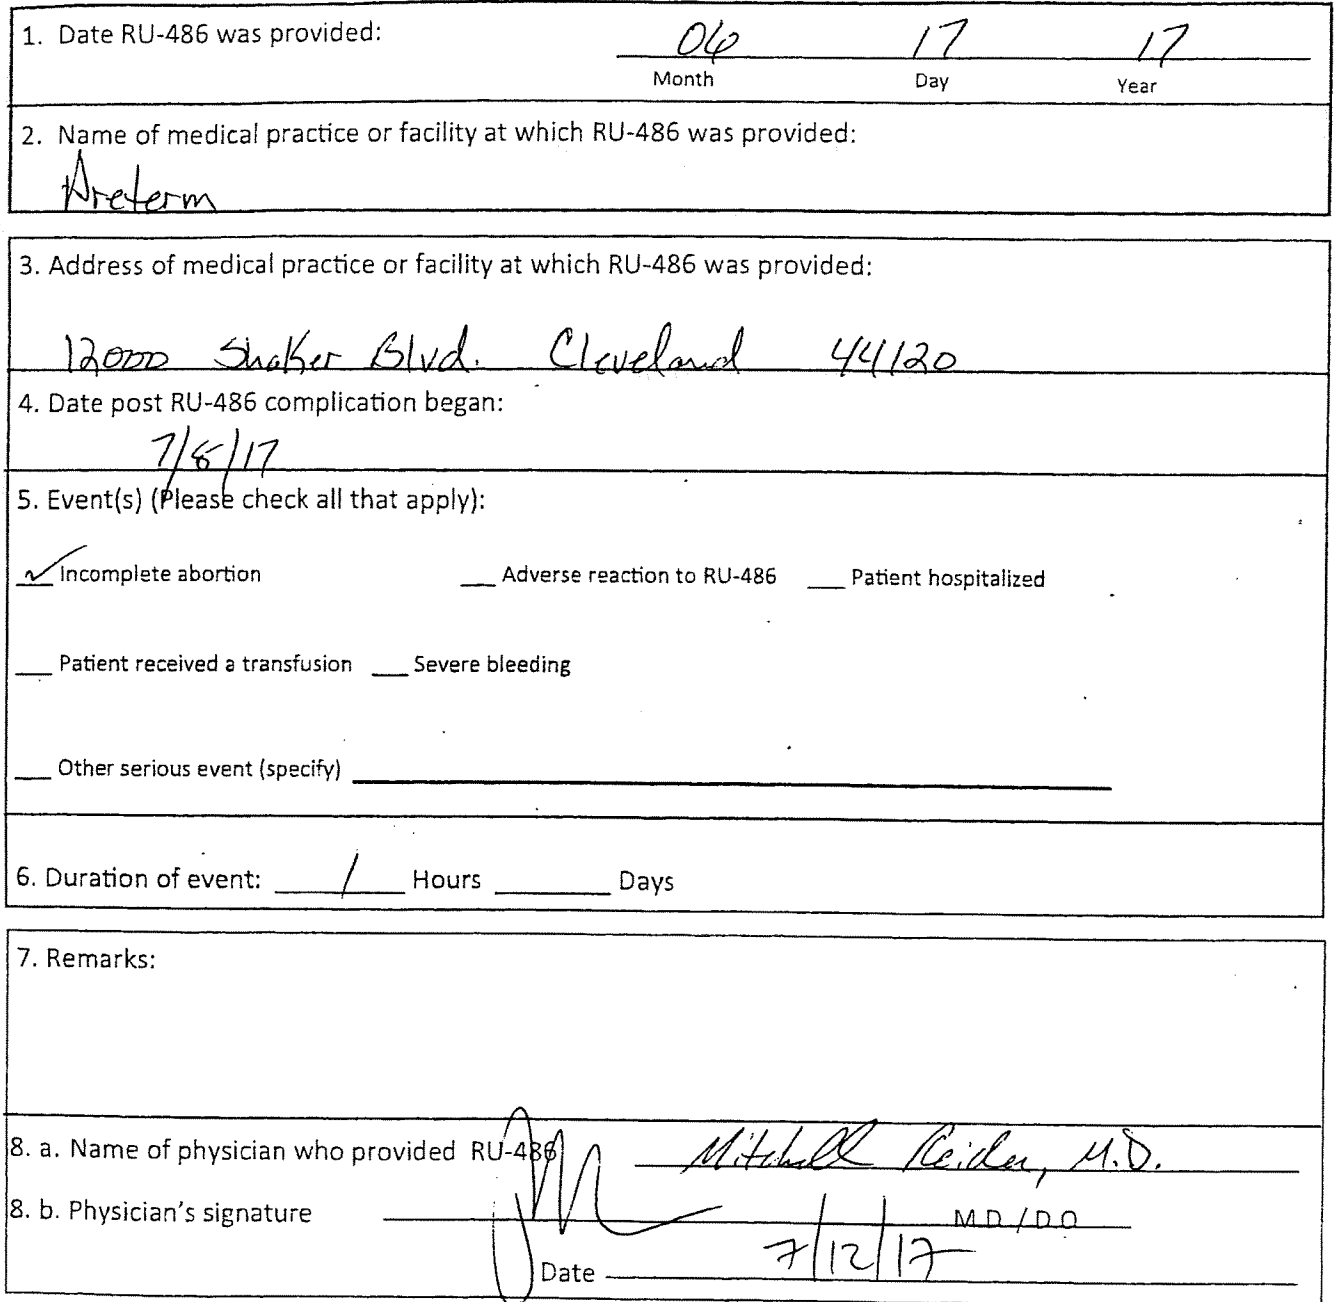 1. Date RU-486 was provided:
06 17 17
Month Day Year
2. Name of medical practice or facility at which RU-486 was provided:
Preterm
3. Address of medical practice or facility at which RU-486 was provided:
12000 Shaker Blvd. Cleveland 44120
4. Date post RU-486 complication began:
7/8/17
5. Event(s) (Please check all that apply):
✓ Incomplete abortion __ Adverse reaction to RU-486 __ Patient hospitalized
__ Patient received a transfusion __ Severe bleeding
__ Other serious event (specify)
6. Duration of event: 1 Hours ____ Days
7. Remarks:
8. a. Name of physician who provided RU-486 Mitchell Reider, M.D.
8. b. Physician's signature M.D/D.O
Date 7/12/17